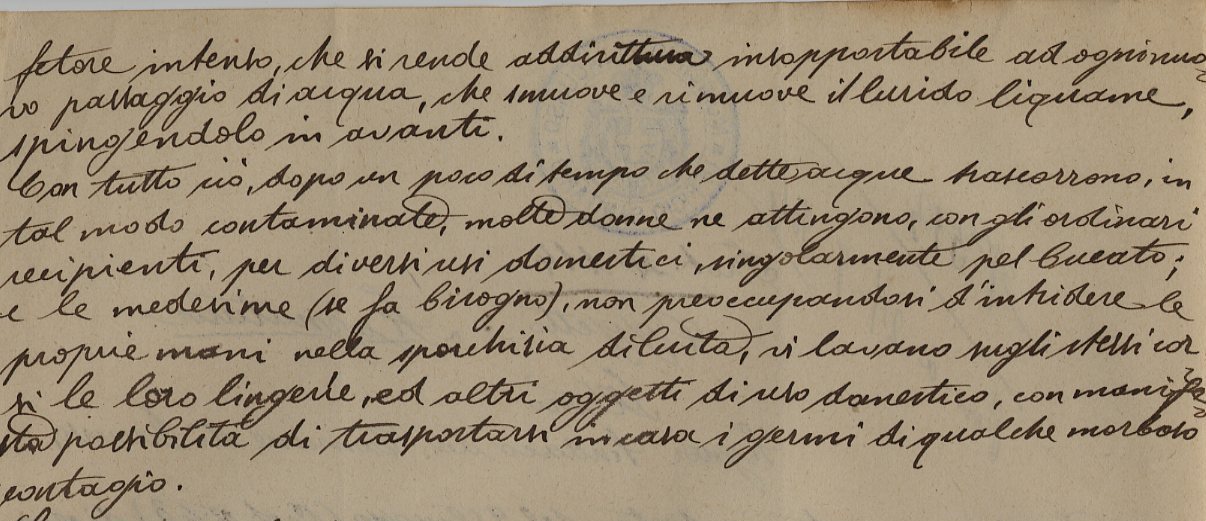 fetore intenso, che si rende addirittura insopportabile ad ogni nuo-
vo passaggio di acqua, che smuove e rimuove il lurido liquame,
spingendolo in avanti.
Con tutto ciò, dopo un poco di tempo che dette acque trascorrono, in
tal modo contaminate, molte donne ne attingono, con gli ordinari
recipienti, per diversi usi domestici, singolarmente pel bucato;
e le medesime (se fa bisogno), non preoccupandosi d'intridere le
proprie mani nella sporchizia diluita, vi lavano sugli stessi cor
si le loro lingerie, ed altri oggetti di uso domestico, con manife-
sta possibilità di trasportarsi in casa i germi di qualche morboso
contagio.